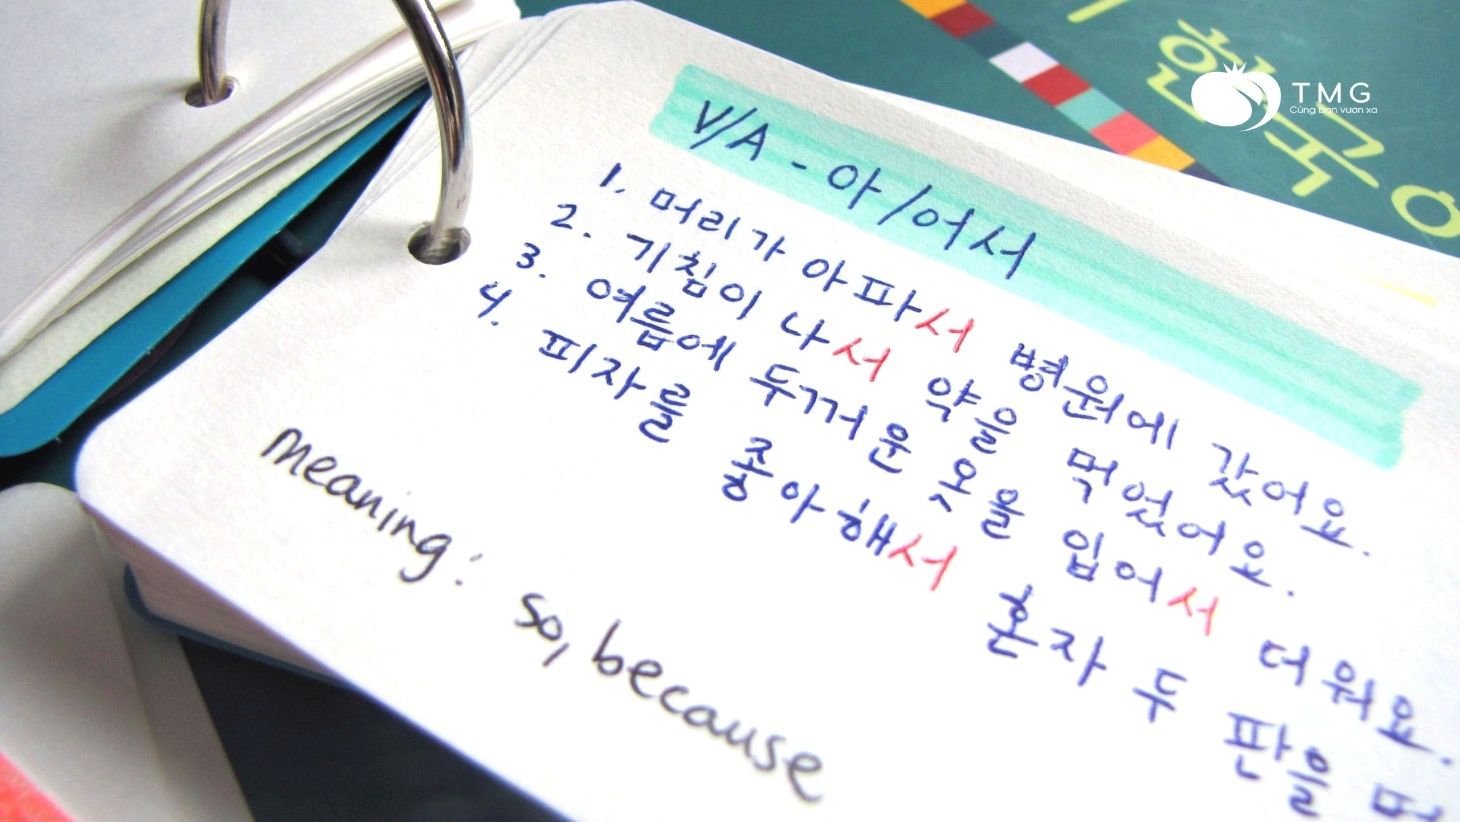 TMG
Cùng bạn vươn xa
한국어
V/A - 아/어서
1. 머리가 아파서 병원에 갔어요.
2. 기침이 나서 약을 먹었어요.
3. 여름에 두꺼운 옷을 입어서 더워요.
4. 피자를 좋아해서 혼자 두 판을
meaning: so, because